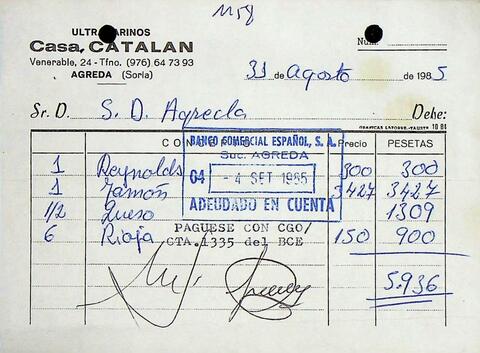 1158
ULTRAMARINOS
Casa CATALAN
Venerable, 24 - Tfno. (976) 64 73 93
AGREDA (Soria)
Núm.
31 de Agosto de 1985
Sr. D. S. D. Agreda Debe:
GRAFICAS LATORRE-TAUSTE 10 81
CON Precio PESETAS
BANCO COMERCIAL ESPAÑOL, S. A.
Suc. AGREDA
04 - 4 SET 1985
ADEUDADO EN CUENTA
1 Reynolds 300 300
1 Jamón 3427 3427
1/2 Queso 1309
6 Rioja 150 900
PAGUESE CON CGO/
CTA.1335 del BCE
5.936